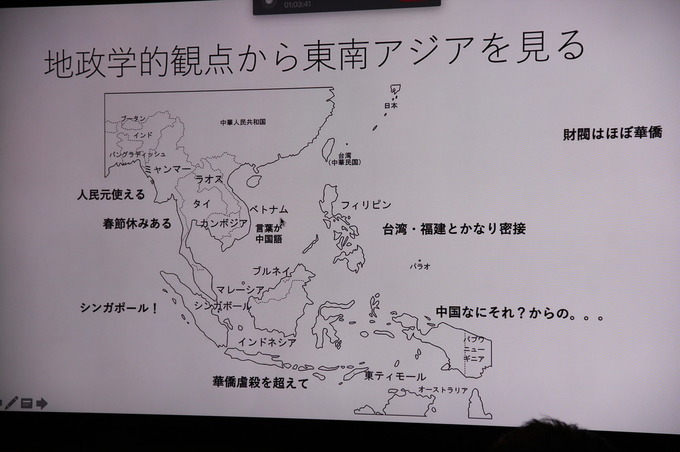 01:03:41
地政学的観点から東南アジアを見る
日本
ブータン
中華人民共和国
インド
財閥はほぼ華僑
バングラディッシュ
台湾
(中華民国)
ミャンマー
ラオス
人民元使える
タイ
ベトナム
フィリピン
春節休みある
カンボジア
言葉が
中国語
台湾・福建とかなり密接
パラオ
ブルネイ
マレーシア
シンガポール！
シンガポール
中国なにそれ？からの。。。
インドネシア
パプワ
ニュー
ギニア
華僑虐殺を超えて
東ティモール
オーストラリア